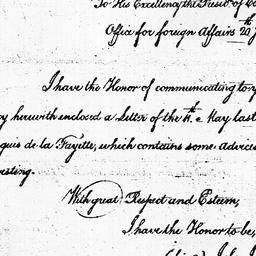 To His Excellency the Presidt. of
Office for foreign Affairs 20
I have the Honor of communicating to
herewith enclosed a Letter of the 11th May last
de la Fayette, which contains some advices
With great Respect and Esteem,
I have the Honor to be,